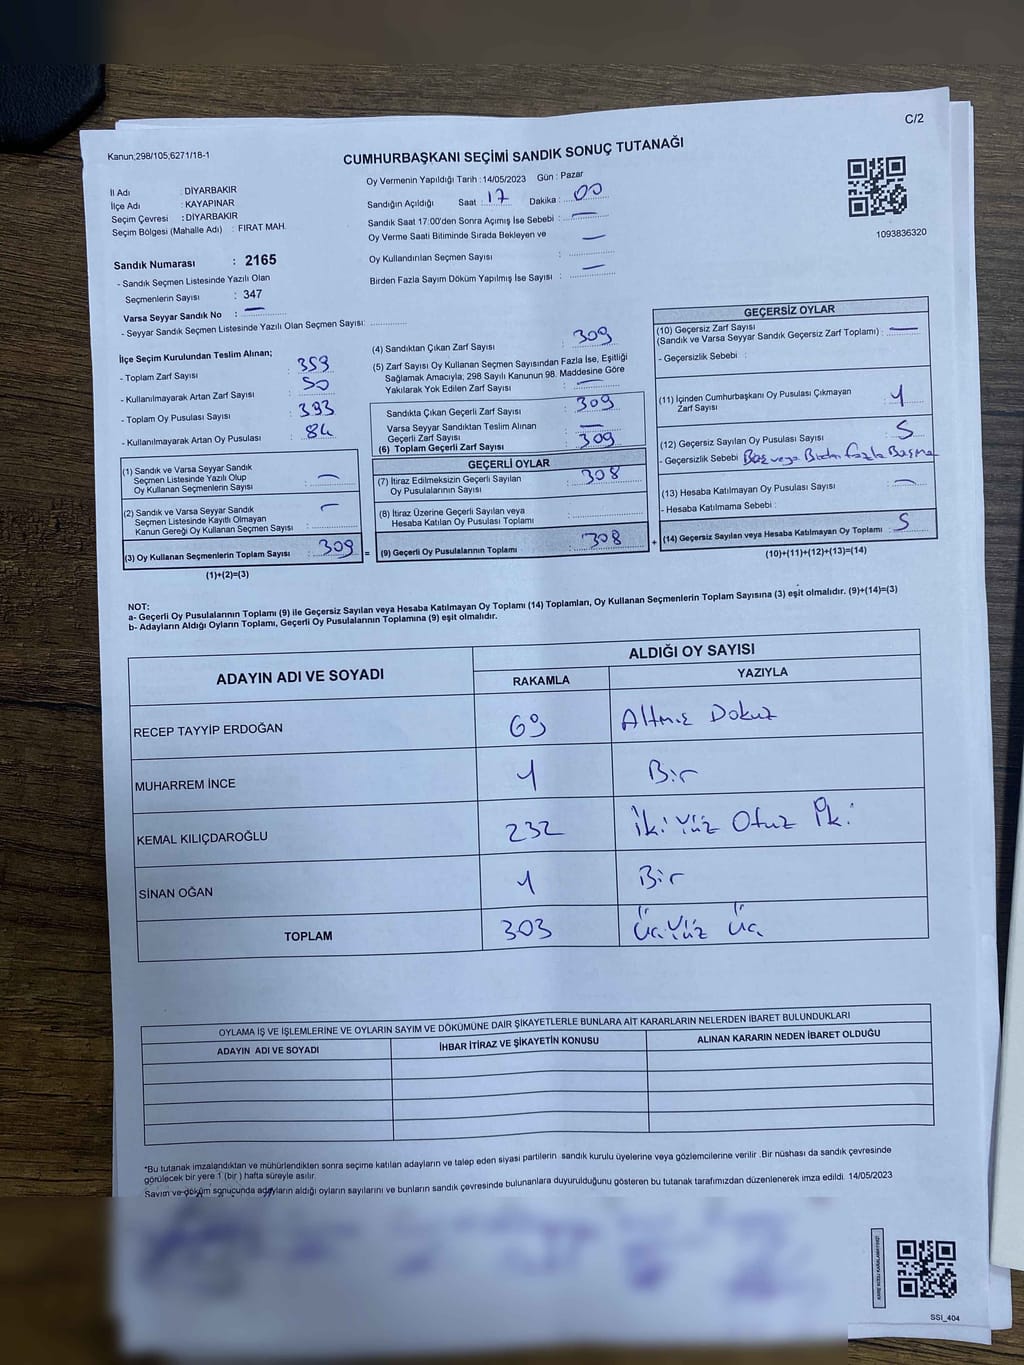 C/2
Kanun;298/105;6271/18-1
CUMHURBAŞKANI SEÇİMİ SANDIK SONUÇ TUTANAĞI
İl Adı : DİYARBAKIR
İlçe Adı : KAYAPINAR
Seçim Çevresi : DİYARBAKIR
Seçim Bölgesi (Mahalle Adı) : FIRAT MAH.
Oy Vermenin Yapıldığı Tarih : 14/05/2023 Gün : Pazar
Sandığın Açıldığı Saat : 17 Dakika : 00
Sandık Saat 17:00'den Sonra Açımış İse Sebebi : —
Oy Verme Saati Bitiminde Sırada Bekleyen ve
Oy Kullandırılan Seçmen Sayısı : —
Birden Fazla Sayım Döküm Yapılmış İse Sayısı : —
1093836320
Sandık Numarası : 2165
- Sandık Seçmen Listesinde Yazılı Olan
Seçmenlerin Sayısı : 347
Varsa Seyyar Sandık No : —
- Seyyar Sandık Seçmen Listesinde Yazılı Olan Seçmen Sayısı:
İlçe Seçim Kurulundan Teslim Alınan;
- Toplam Zarf Sayısı : 359
- Kullanılmayarak Artan Zarf Sayısı : 50
- Toplam Oy Pusulası Sayısı : 393
- Kullanılmayarak Artan Oy Pusulası : 84
(1) Sandık ve Varsa Seyyar Sandık
Seçmen Listesinde Yazılı Olup
Oy Kullanan Seçmenlerin Sayısı : —
(2) Sandık ve Varsa Seyyar Sandık
Seçmen Listesinde Kayıtlı Olmayan
Kanun Gereği Oy Kullanan Seçmen Sayısı : —
(3) Oy Kullanan Seçmenlerin Toplam Sayısı : 309 =
(1)+(2)=(3)
(4) Sandıktan Çıkan Zarf Sayısı : 309
(5) Zarf Sayısı Oy Kullanan Seçmen Sayısından Fazla İse, Eşitliği
Sağlamak Amacıyla; 298 Sayılı Kanunun 98. Maddesine Göre
Yakılarak Yok Edilen Zarf Sayısı : —
Sandıkta Çıkan Geçerli Zarf Sayısı : 309
Varsa Seyyar Sandıktan Teslim Alınan
Geçerli Zarf Sayısı : —
(6) Toplam Geçerli Zarf Sayısı : 309
GEÇERLİ OYLAR
(7) İtiraz Edilmeksizin Geçerli Sayılan
Oy Pusulalarının Sayısı : 308
(8) İtiraz Üzerine Geçerli Sayılan veya
Hesaba Katılan Oy Pusulası Toplamı :
(9) Geçerli Oy Pusulalarının Toplamı : 308 +
GEÇERSİZ OYLAR
(10) Geçersiz Zarf Sayısı
(Sandık ve Varsa Seyyar Sandık Geçersiz Zarf Toplamı) : —
- Geçersizlik Sebebi :
(11) İçinden Cumhurbaşkanı Oy Pusulası Çıkmayan
Zarf Sayısı : 1
(12) Geçersiz Sayılan Oy Pusulası Sayısı : 5
- Geçersizlik Sebebi Boş veya Birden fazla Basma
(13) Hesaba Katılmayan Oy Pusulası Sayısı : —
- Hesaba Katılmama Sebebi :
(14) Geçersiz Sayılan veya Hesaba Katılmayan Oy Toplamı : 5
(10)+(11)+(12)+(13)=(14)
NOT:
a- Geçerli Oy Pusulalarının Toplamı (9) ile Geçersiz Sayılan veya Hesaba Katılmayan Oy Toplamı (14) Toplamları, Oy Kullanan Seçmenlerin Toplam Sayısına (3) eşit olmalıdır. (9)+(14)=(3)
b- Adayların Aldığı Oyların Toplamı, Geçerli Oy Pusulalarının Toplamına (9) eşit olmalıdır.
ADAYIN ADI VE SOYADI
ALDIĞI OY SAYISI
RAKAMLA YAZIYLA
RECEP TAYYİP ERDOĞAN 69 Altmış Dokuz
MUHARREM İNCE 1 Bir
KEMAL KILIÇDAROĞLU 232 İki Yüz Otuz İki
SİNAN OĞAN 1 Bir
TOPLAM 303 Üç Yüz Üç
OYLAMA İŞ VE İŞLEMLERİNE VE OYLARIN SAYIM VE DÖKÜMÜNE DAİR ŞİKAYETLERLE BUNLARA AİT KARARLARIN NELERDEN İBARET BULUNDUKLARI
ADAYIN ADI VE SOYADI İHBAR İTİRAZ VE ŞİKAYETİN KONUSU ALINAN KARARIN NEDEN İBARET OLDUĞU
*Bu tutanak imzalandıktan ve mühürlendikten sonra seçime katılan adayların ve talep eden siyasi partilerin sandık kurulu üyelerine veya gözlemcilerine verilir .Bir nüshası da sandık çevresinde
görülecek bir yere 1 (bir ) hafta süreyle asılır.
Sayım ve döküm sonucunda adayların aldığı oyların sayılarını ve bunların sandık çevresinde bulunanlara duyurulduğunu gösteren bu tutanak tarafımızdan düzenlenerek imza edildi. 14/05/2023
SSI_404